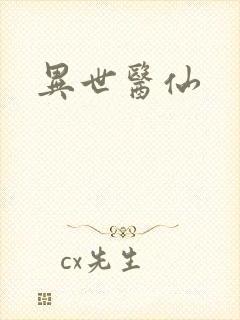 異世醫仙
cx先生